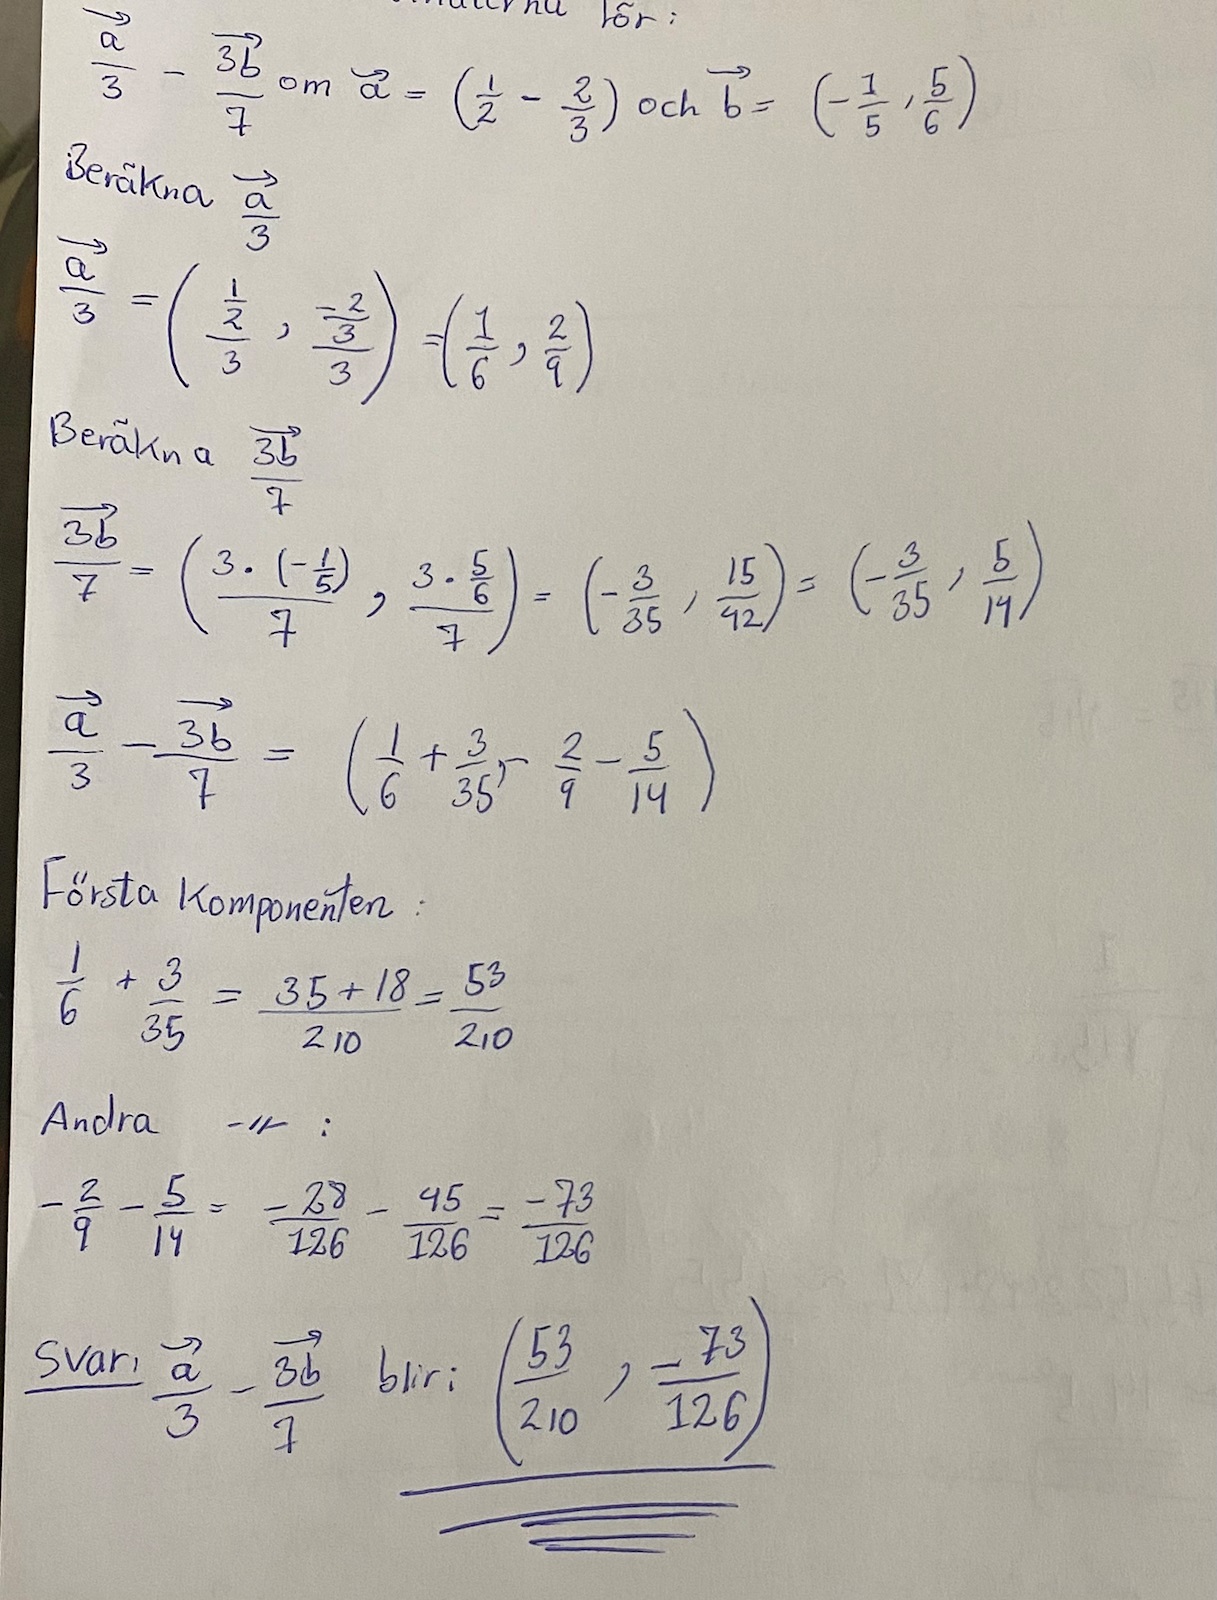 för:
a⃗/3 - 3b⃗/7 om a⃗ = (1/2 - 2/3) och b⃗ = (-1/5, 5/6)
Beräkna a⃗/3
a⃗/3 = ((1/2)/3, (-2/3)/3) = (1/6, 2/9)
Beräkna 3b⃗/7
3b⃗/7 = (3·(-1/5)/7, 3·5/6/7) = (-3/35, 15/42) = (-3/35, 5/14)
a⃗/3 - 3b⃗/7 = (1/6 + 3/35, - 2/9 - 5/14)
Första Komponenten:
1/6 + 3/35 = 35+18/210 = 53/210
Andra -〃- :
-2/9 - 5/14 = -28/126 - 45/126 = -73/126
Svar: a⃗/3 - 3b⃗/7 blir: (53/210, -73/126)